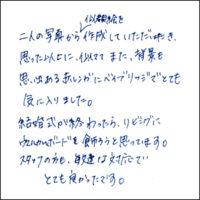 二人の写真から似顔絵を作成していただき、
思った以上に似ててまた、背景も
思い出あるあしがにベイブリッジでとても
気に入りました。
結婚式が終わったら、リビングに
ウェルカムボードを飾ろうと思ってます。
スタッフの方も、敏速な対応で
とても良かったです。